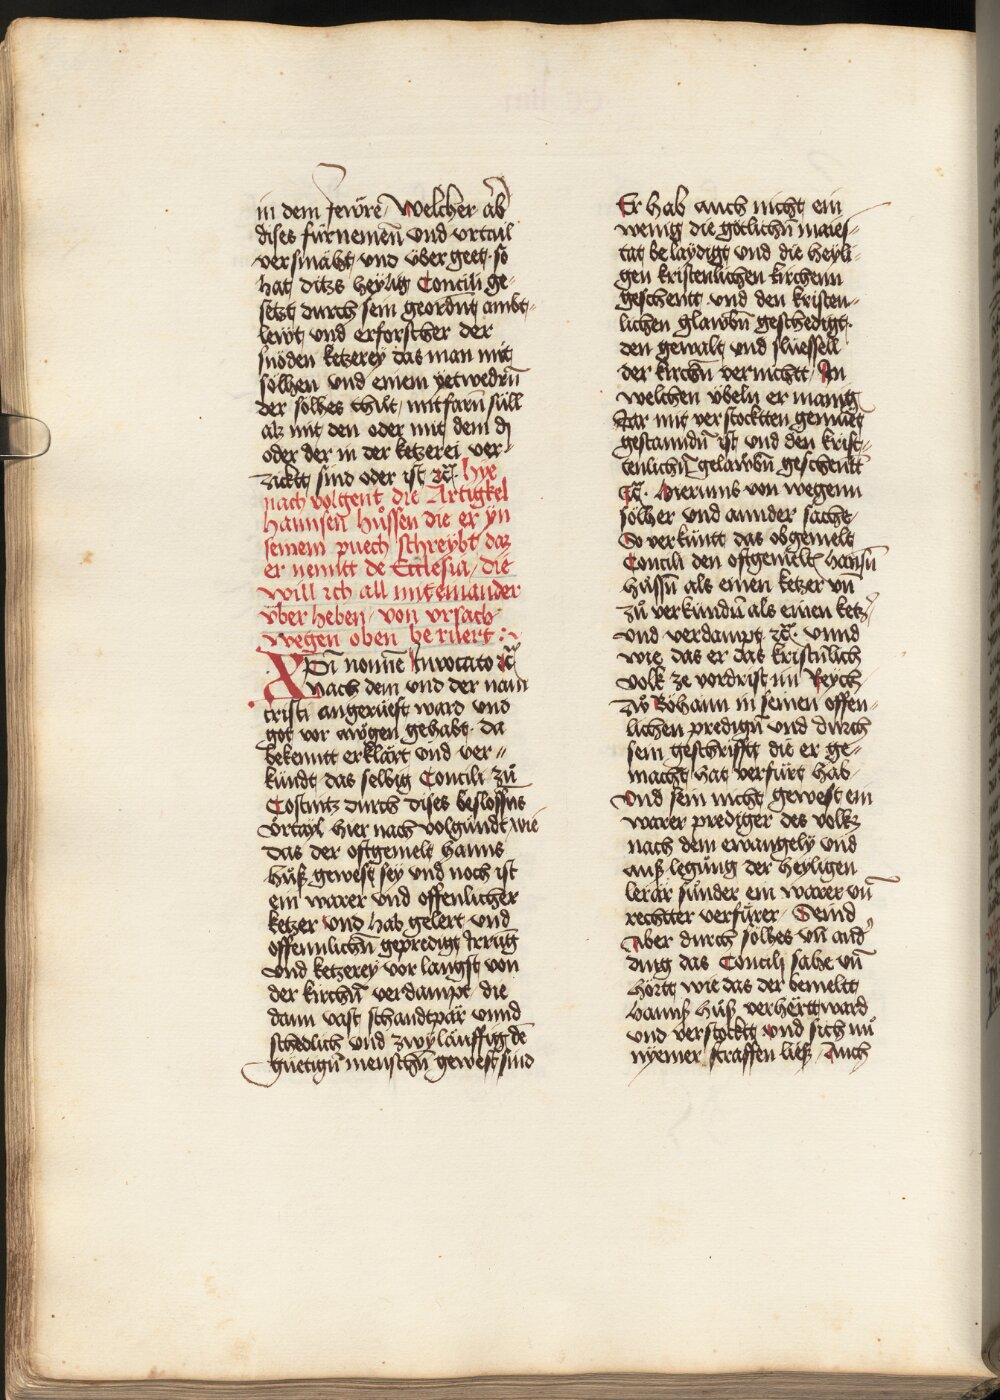 in dem fewͤre / Welcher ab̕
dises fürnemen̄ vnd vrtail
versmäht vnd vͤber geet · so
hat ditzs heylig Concili ge⸗
setzt durch sein geordn̄t ambt⸗
lewt vnd erforscher der
snöden ketzerey das man mit
solhen vnd einem yetwedr̄n
der solhes thüt / mitfarn̄ süll
alz mit den oder mit dem d̕
oder der in der ketzerei ver⸗
zickt sind oder ist ꝛc̄ · hye
nach volgent die Artigkel
hannsen̄ hůssen die er yn
seinem puech schreybt daz
er nennt de Ecclesia / die
will ich all miteinander
vͤber heben / von vrsach
wegen oben be ruert :~
XPi nomine Inuocato ꝛc̄
Nach dem vnd der nam
cristi angerüeft ward vnd
got vor awgen gehabt · da
bekennt erklärt vnd ver⸗
kündt das selbig Concili zů
Costnitz durch dises beslossens
vrtayl hier nach volgundt / wie
das der oftgemelt hanns
hůß gewest sey vnd noch ist
ein warer vnd offenlicher
ketzer vnd hab gelert vnd
offennlichn̄ gepredigt Irrung
vnd ketzerey vor langst von
der kirchn̄ verdampt / die
dann vast schandtpär vnnd
schedlich vnd zwyläuffig dē
güetign̄ menschn̄ gewest sind
Er hab auch nicht ein
wenig die götlichn̄ maies⸗
tat be laydigt vnd die heyli⸗
gen kristenlichen kirchenn
geschentt vnd den kristen⸗
lichen glawbn̄ geschedigt ·
den gewalt vnd slüessell
der kirchn̄ vernichtt / In
welchen vͤbeln er manig
Jar mit verstocktten gemuet
gestanndn̄ ist vnd den krist⸗
tenlichn̄ gelawbn̄ geschentt
ꝛc̄ · hierumb von wegenn
sölher vnd annder sache /
So verkünt das obgemelt
Concili den oftgemelt̄ hansn̄
hůssn̄ als einen ketzer vn̄
zů verkündn̄ als einen ketz̕
vnd verdampt ꝛc̄ · vnnd
wie das er das kristnlich
volk ze vordrist im Reych
zů Böhaim in seinen offen⸗
lichen predign̄ vnd durch
sein geschrifft die er ge⸗
macht hat verfürt hab /
vnd sein nicht gewest ein
warer prediger des volkz
nach dem ewangely vnd
auß legung der heyligen
lerär sunder ein warer vn̄
rechtter verfürer / Seind
Aber durch solhes vn̄ and̕
ding das Concilj sahe vn̄
hörtt wie das der bemeltt
hannß hůß verhërtt ward
vnd verstockt vnd sich nů
nyemer straffen ließ / Auch